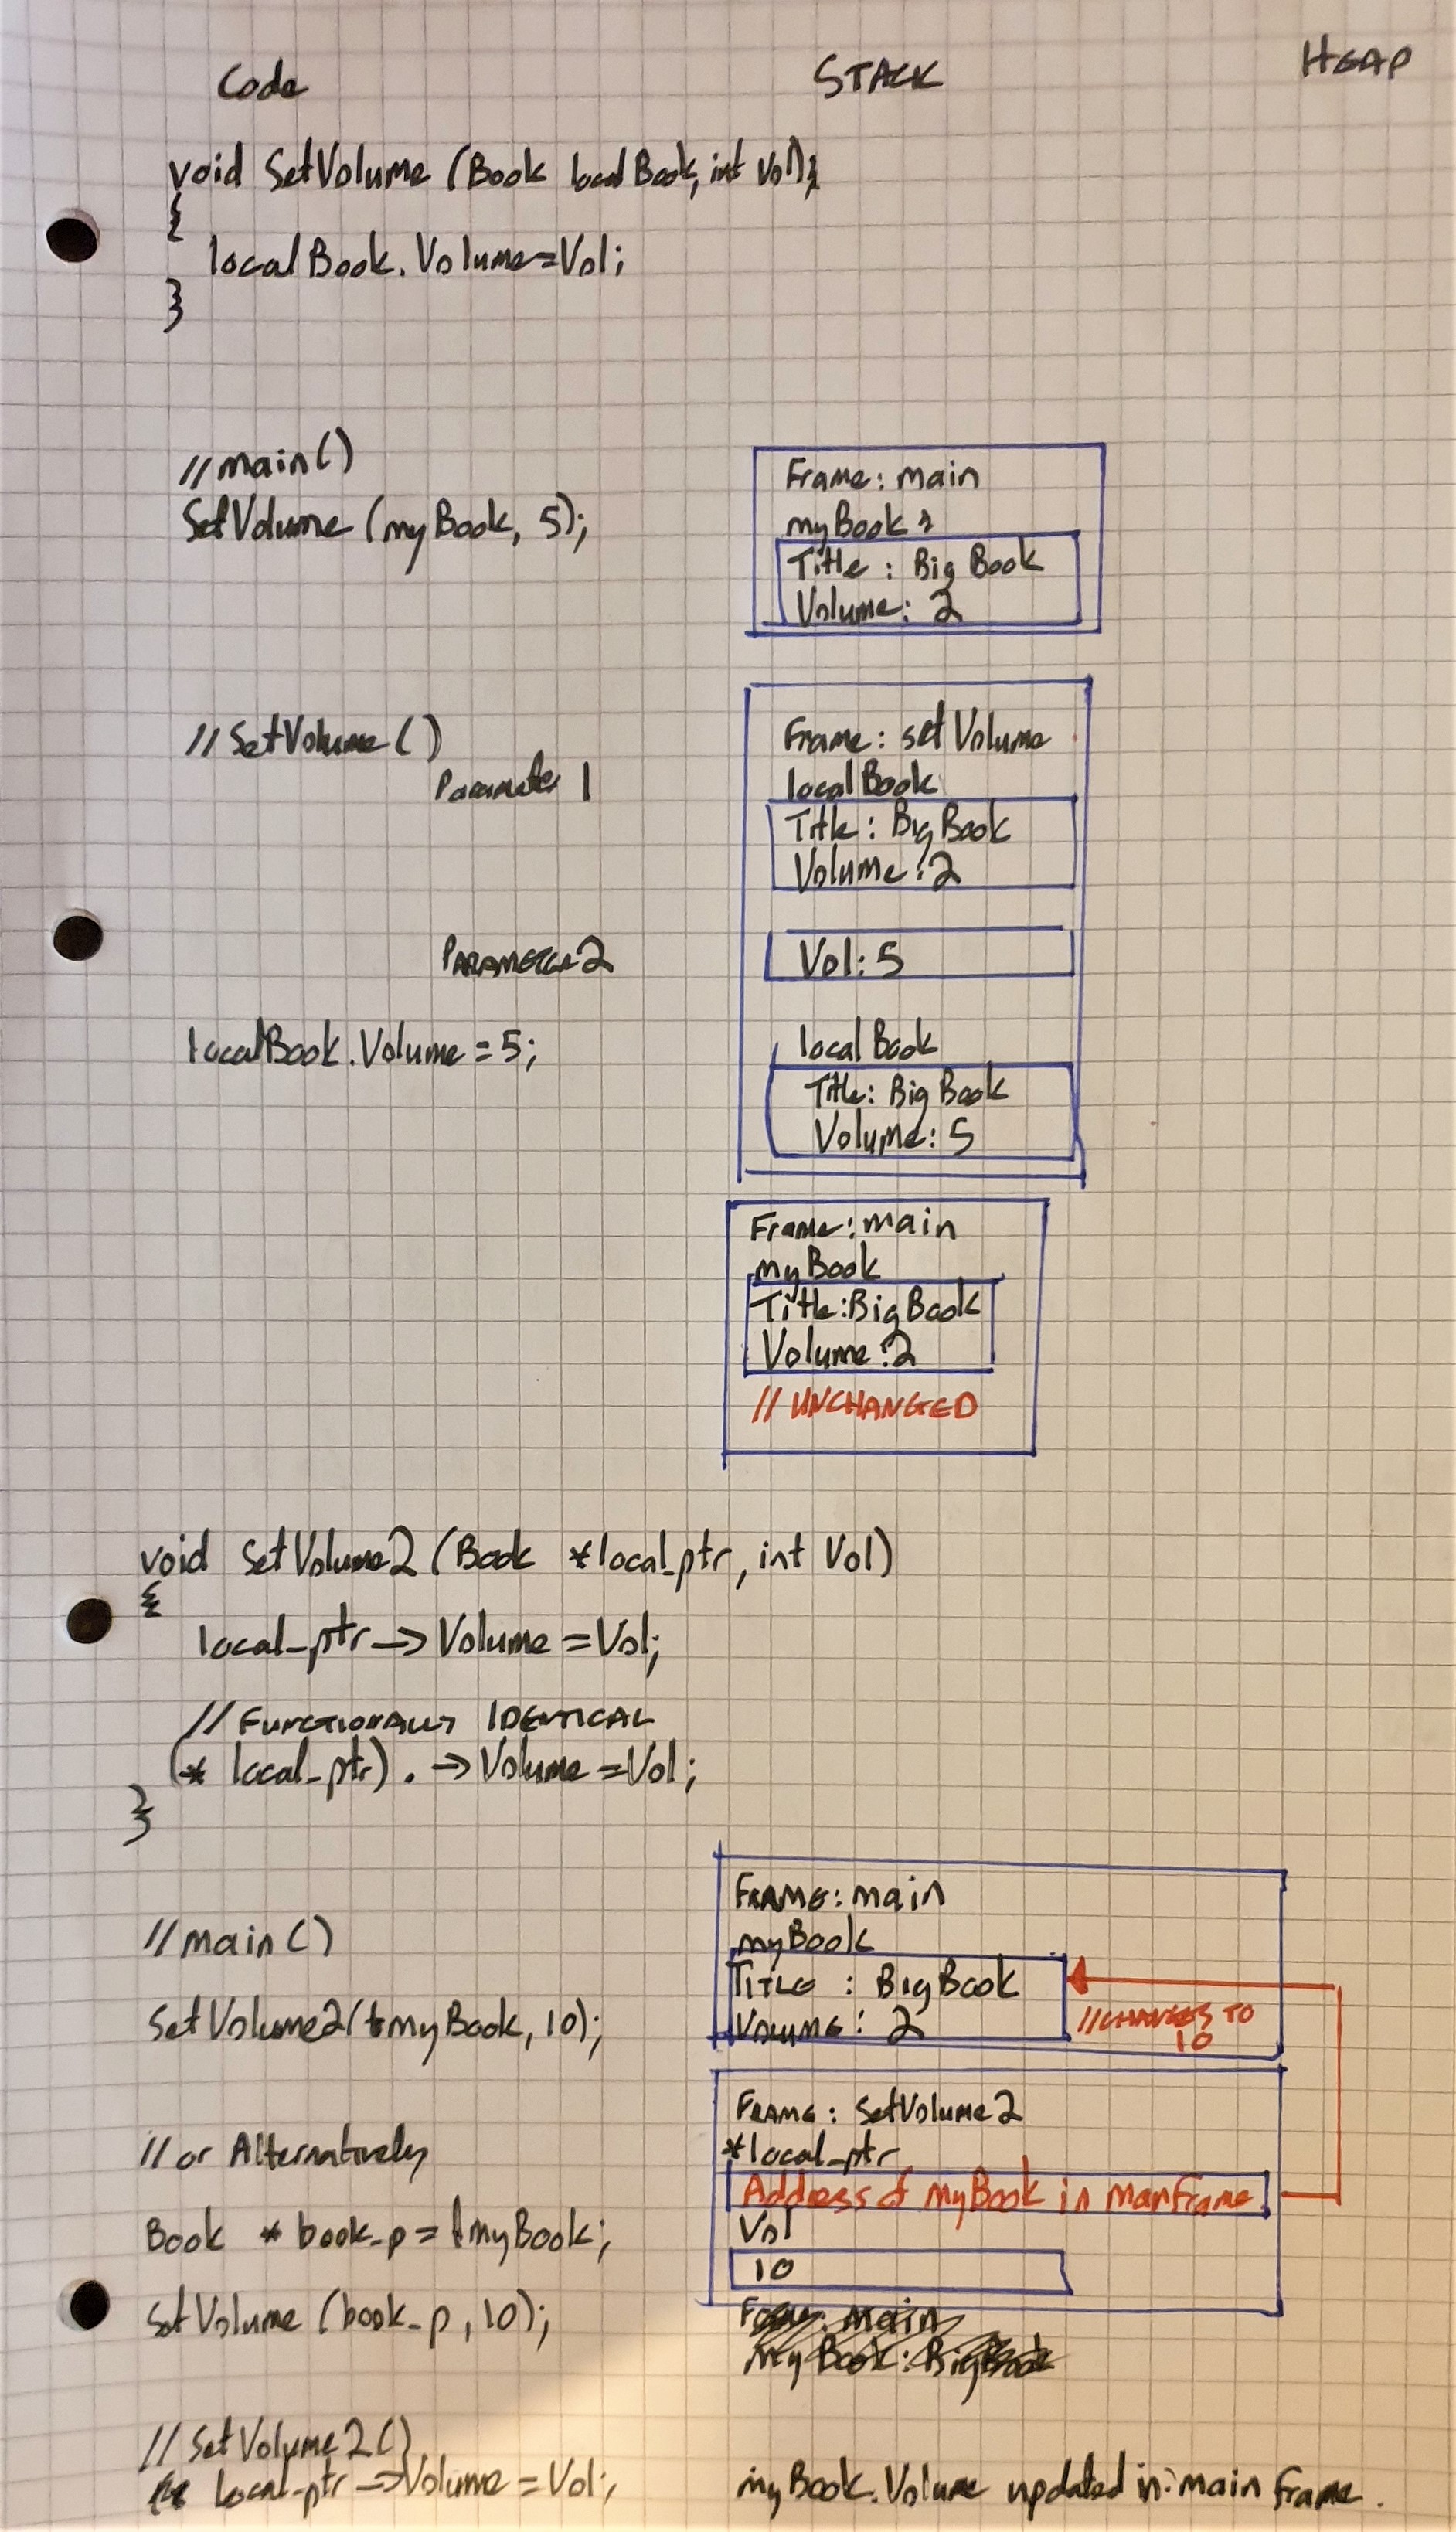 Code STACK HEAP
void SetVolume (Book localBook, int Vol);
{
localBook.Volume=Vol;
}
//main()
SetVolume (myBook, 5);
Frame: main
myBook:
Title: Big Book
Volume: 2
//SetVolume()
Parameter 1
Frame: setVolume
localBook
Title: Big Book
Volume: 2
PARAMETER 2
Vol: 5
localBook.Volume = 5;
local Book
Title: Big Book
Volume: 5
Frame: main
myBook
Title: Big Book
Volume: 2
// UNCHANGED
void SetVolume2 (Book *local_ptr, int Vol)
{
local_ptr -> Volume = Vol;
// FUNCTIONALLY IDENTICAL
(* local_ptr). -> Volume = Vol;
}
//main()
SetVolume2(&myBook, 10);
FRAME: main
myBook
TITLE: Big Book
VOLUME: 2
//CHANGES TO
10
// or Alternatively
Book * book_p = &myBook;
SetVolume (book_p, 10);
FRAME: SetVolume2
*local_ptr
Address of myBook in main frame
Vol
10
Frame: main
myBook: BigBook
// SetVolume2()
local_ptr -> Volume = Vol;
myBook.Volume updated in: main frame.